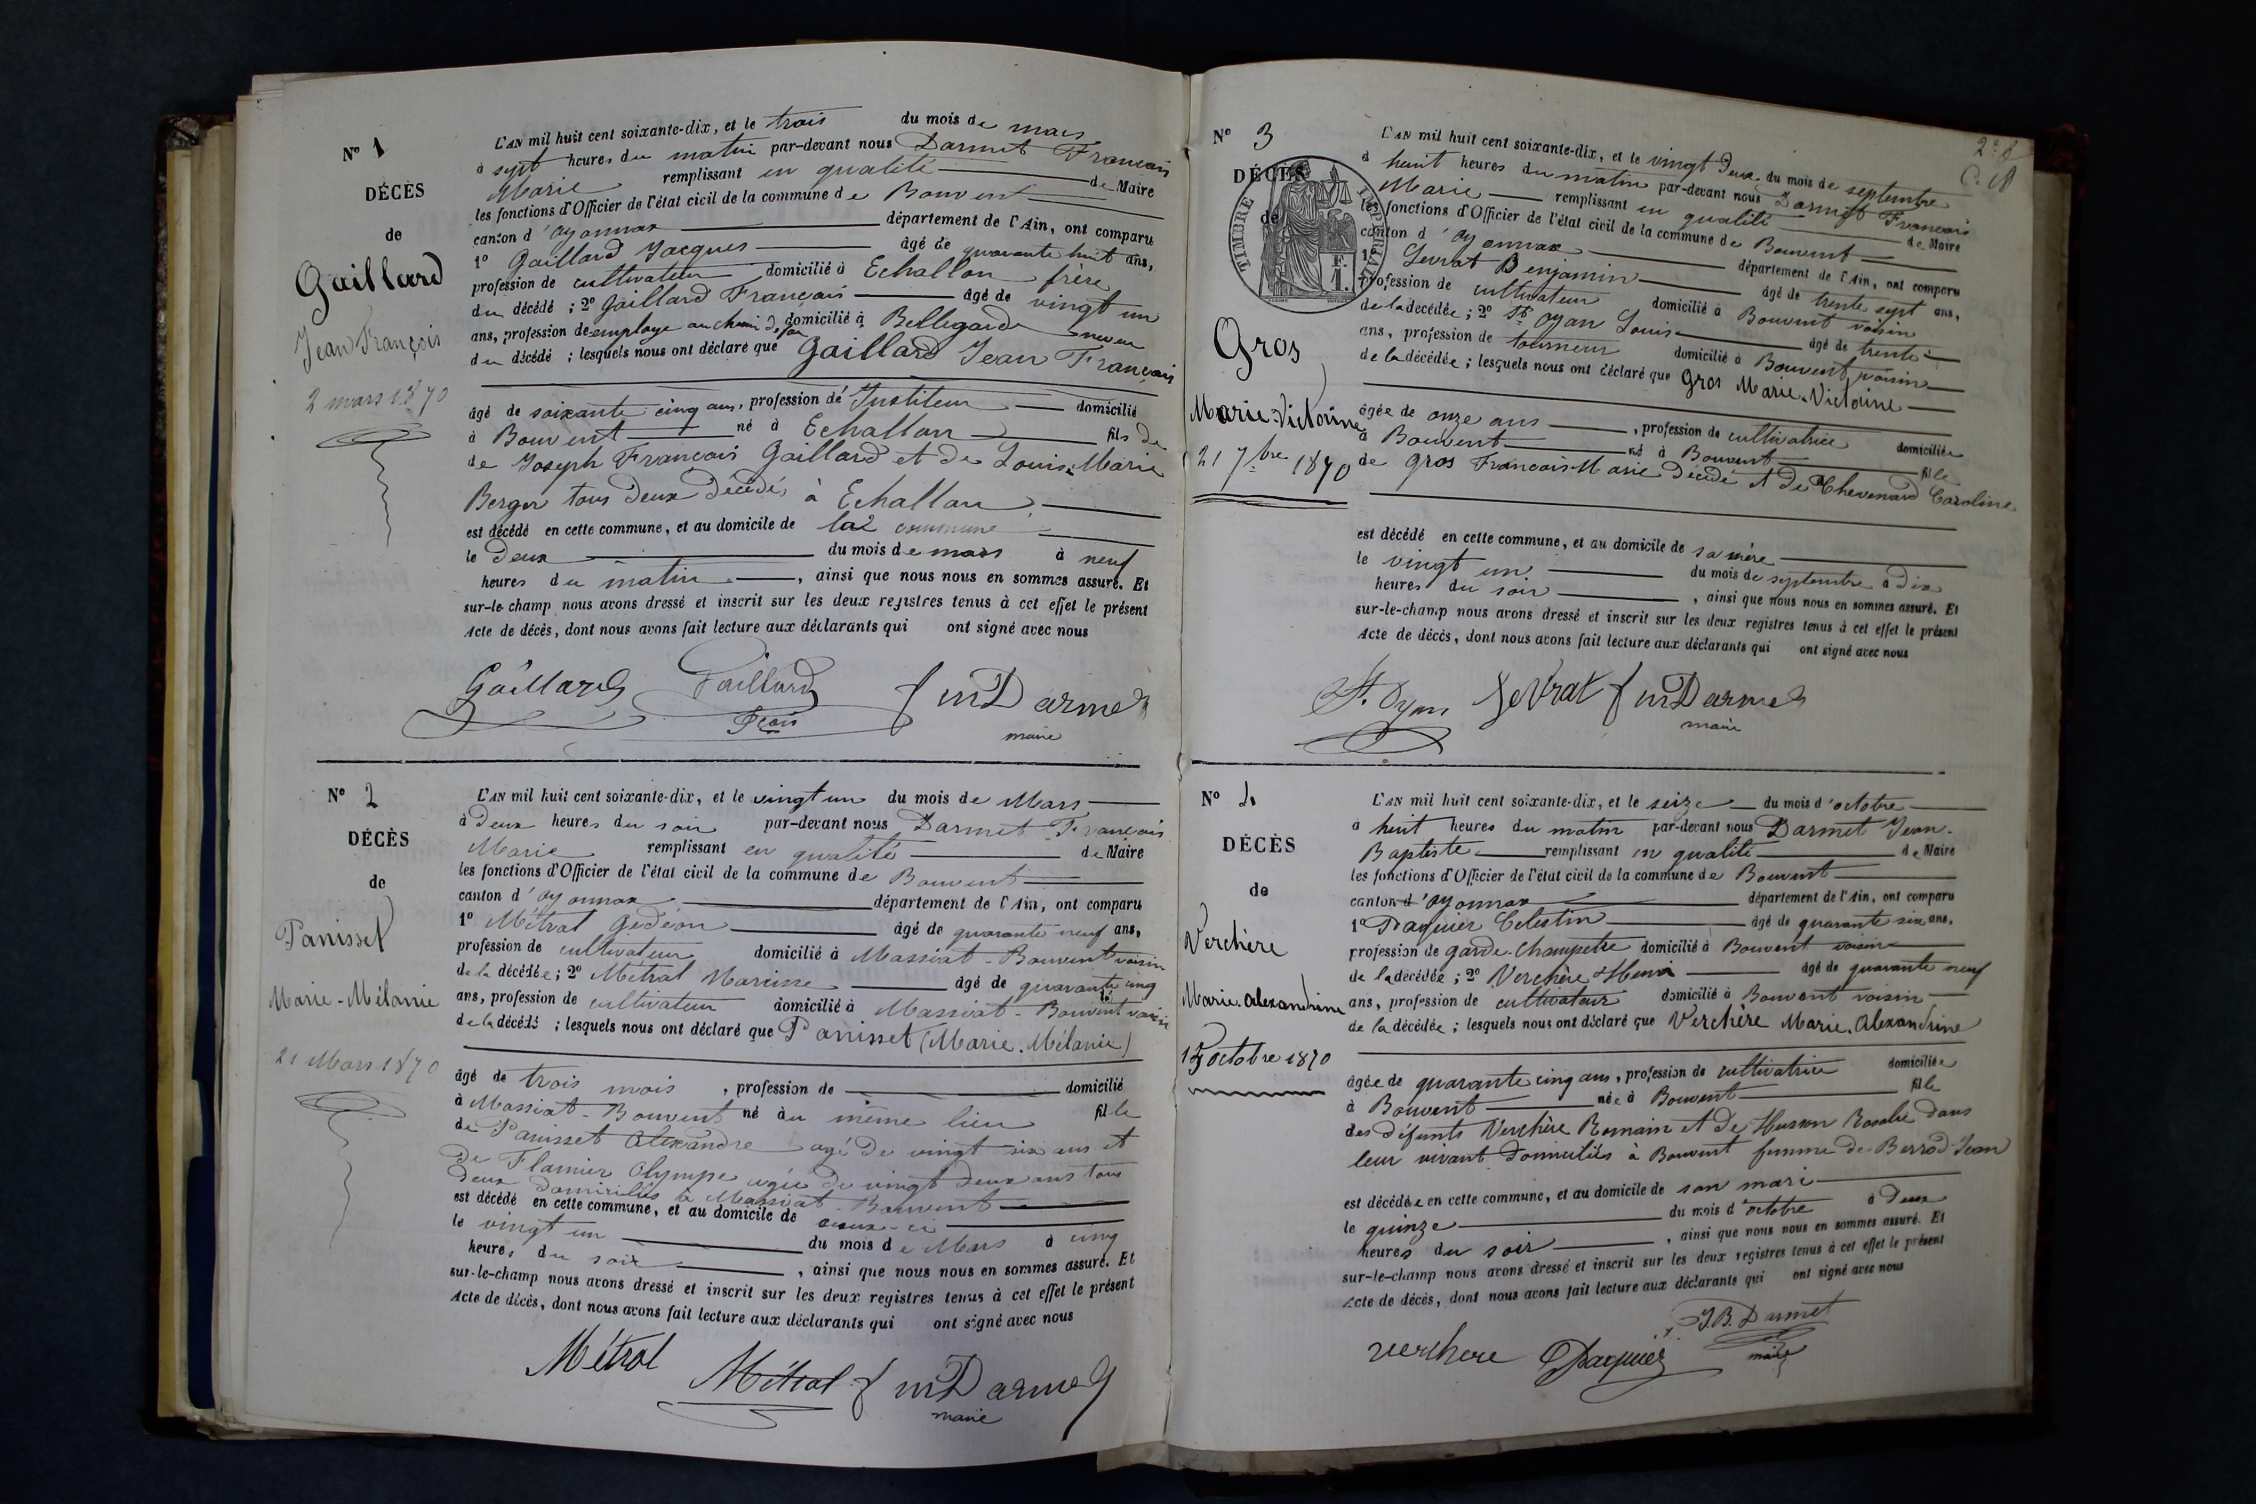 N° 1
DÉCÈS
de
Gaillard
Jean François
2 mars 1870
L'AN mil huit cent soixante-dix, et le trois du mois de mars
à sept heures du matin par-devant nous Darmet François
Marie remplissant en qualité de Maire
les fonctions d'Officier de l'état civil de la commune de Bouvent
canton d'oyonnax département de l'Ain, ont comparu
1° Gaillard Jacques âgé de quarante huit ans,
profession de cultivateur domicilié à Echallon frère
du décédé ; 2° Gaillard François âgé de vingt un
ans, profession de employe au chemin de fer domicilié à Bellegarde neveu
du décédé ; lesquels nous ont déclaré que Gaillard Jean François
âgé de soixante cinq ans, profession de Instituteur domicilié
à Bouvent né à Echallon fils de
de Joseph François Gaillard et de Louise Marie
Berger tous deux décédés à Echallon
est décédé en cette commune, et au domicile de la commune
le deux du mois de mars à neuf
heures du matin, ainsi que nous nous en sommes assuré. Et
sur-le-champ nous avons dressé et inscrit sur les deux registres tenus à cet effet le présent
Acte de décès, dont nous avons fait lecture aux déclarants qui ont signé avec nous
Gaillard Gaillard fmDarmet
fçois maire
N° 2
DÉCÈS
de
Panisset
Marie-Mélanie
21 Mars 1870
L'AN mil huit cent soixante-dix, et le vingt un du mois de Mars
à Deux heures du soir par-devant nous Darmet François
Marie remplissant en qualité de Maire
les fonctions d'Officier de l'état civil de la commune de Bouvent
canton d'oyonnax département de l'Ain, ont comparu
1° Métral Gédéon âgé de quarante neuf ans,
profession de cultivateur domicilié à Massiat-Bouvent voisin
de la décédée ; 2° Métral Narcisse âgé de quarante cinq
ans, profession de cultivateur domicilié à Massiat-Bouvent voisin
de la décédé ; lesquels nous ont déclaré que Panisset (Marie.Mélanie)
âgé de trois mois, profession de domicilié
à Massiat-Bouvent né au même lieu fille
de Panisset Alexandre agé de vingt six ans et
de Flamier Olympe agée de vingt deux ans tous
deux domiciliés à Massiat-Bouvent
est décédé en cette commune, et au domicile de ceux-ci
le vingt un du mois de Mars à cinq
heures du soir, ainsi que nous nous en sommes assuré. Et
sur-le-champ nous avons dressé et inscrit sur les deux registres tenus à cet effet le présent
Acte de décès, dont nous avons fait lecture aux déclarants qui ont signé avec nous
Métral Métral fmDarmet
maire
N° 3
DÉCÈS
de
TIMBRE IMPERIAL
F.
1.
Gros
Marie-Victoire
21 7bre 1870
L'AN mil huit cent soixante-dix, et le vingt deux du mois de septembre
à huit heures du matin par-devant nous Darmet François
Marie remplissant en qualité de Maire
les fonctions d'Officier de l'état civil de la commune de Bouvent
canton d'oyonnax département de l'Ain, ont comparu
1° Levrat Benjamin âgé de trente sept ans,
profession de cultivateur domicilié à Bouvent voisin
de la décédée ; 2° St oyan Louis âgé de trente
ans, profession de tourneur domicilié à Bouvent voisin
de la décédée ; lesquels nous ont déclaré que Gros Marie.Victoire
âgée de onze ans, profession de cultivatrice domiciliée
à Bouvent né à Bouvent fille
de Gros François-Marie décédé et de Chevenard Caroline
est décédé en cette commune, et au domicile de sa mère
le vingt un du mois de septembre à dix
heures du soir, ainsi que nous nous en sommes assuré. Et
sur-le-champ nous avons dressé et inscrit sur les deux registres tenus à cet effet le présent
Acte de décès, dont nous avons fait lecture aux déclarants qui ont signé avec nous
St. Oyan Levrat fmDarmet
maire
N° 4
DÉCÈS
de
Verchère
Marie.Alexandrine
15 octobre 1870
L'AN mil huit cent soixante-dix, et le seize du mois d'octobre
à huit heures du matin par-devant nous Darmet Jean-
Baptiste remplissant en qualité de Maire
les fonctions d'Officier de l'état civil de la commune de Bouvent
canton d'oyonnax département de l'Ain, ont comparu
1° Pâquier Celestin âgé de quarante six ans,
profession de garde-champetre domicilié à Bouvent voisin
de la décédée ; 2° Verchère Henri âgé de quarante neuf
ans, profession de cultivateur domicilié à Bouvent voisin
de la décédée ; lesquels nous ont déclaré que Verchère Marie.Alexandrine
âgée de quarante cinq ans, profession de cultivatrice domiciliée
à Bouvent née à Bouvent fille
des défunts Verchère Romain et de Husson Rosalie dans
leur vivant domiciliés à Bouvent femme de Berrod Jean
est décédée en cette commune, et au domicile de son mari
le quinze du mois d'octobre à deux
heures du soir, ainsi que nous nous en sommes assuré. Et
sur-le-champ nous avons dressé et inscrit sur les deux registres tenus à cet effet le présent
Acte de décès, dont nous avons fait lecture aux déclarants qui ont signé avec nous
J.B. Darmet
verchere Paquier maire